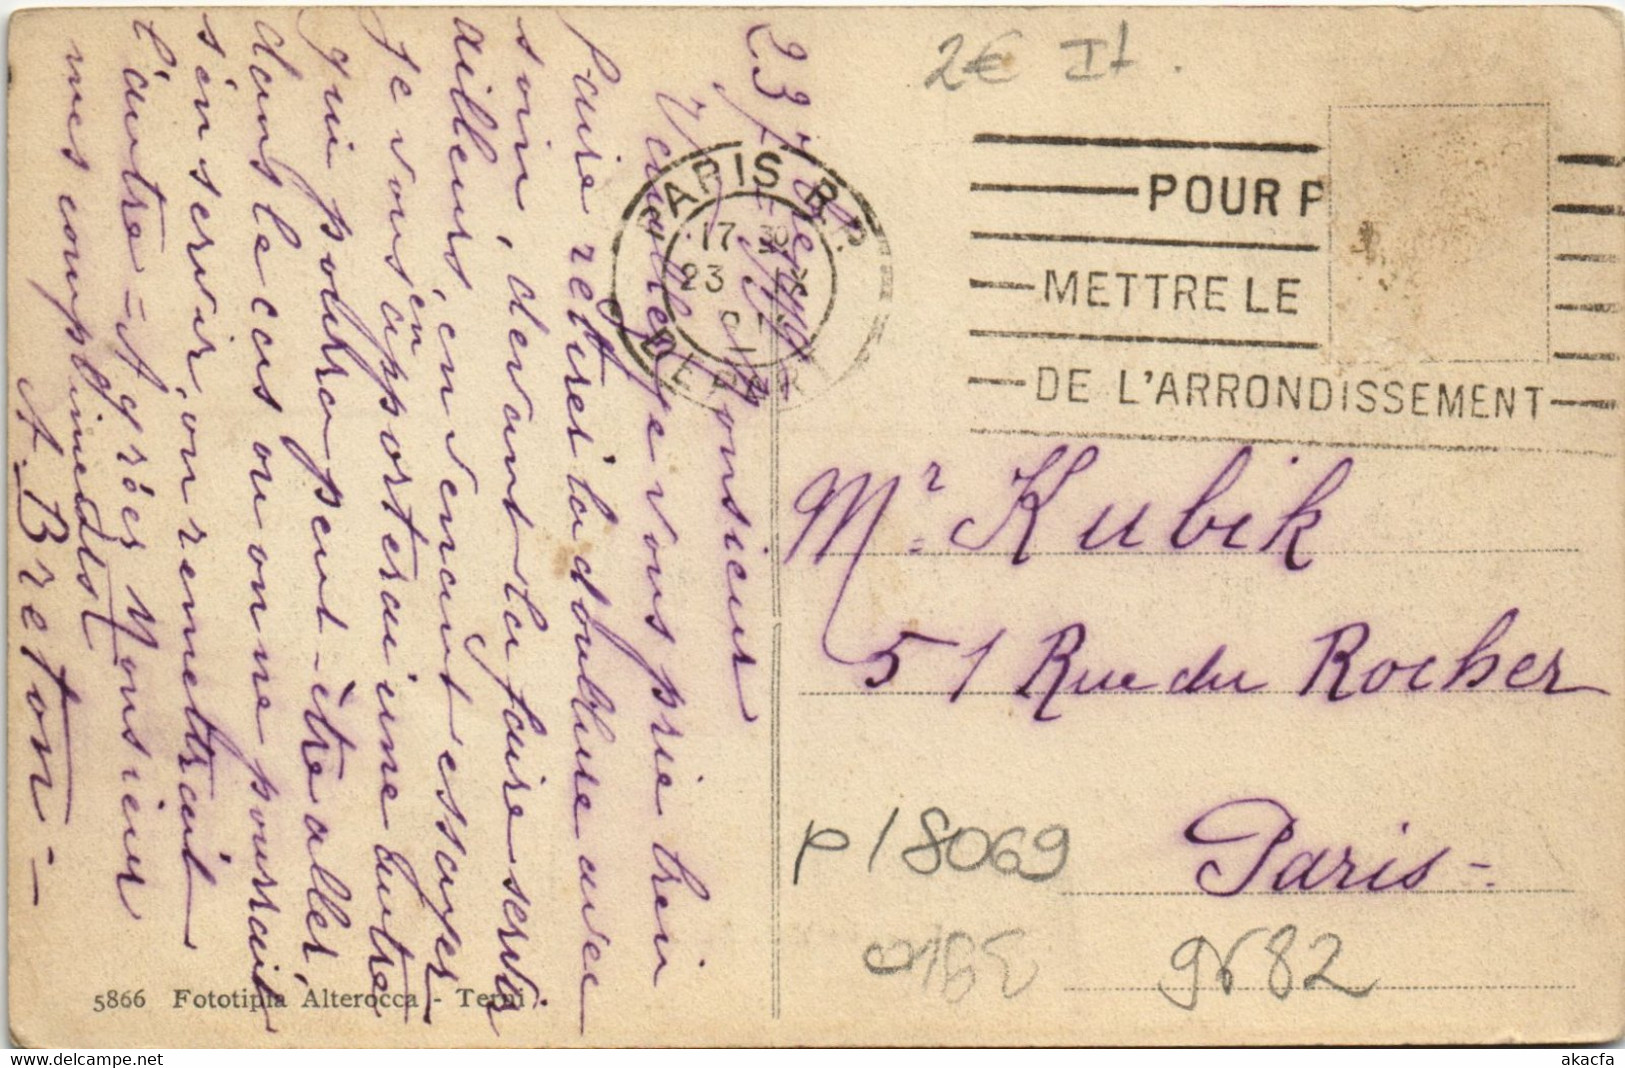 23 7bre 1919
Monsieur
Veuillez je vous prie bien
faire retirer la doublure avec
soin, devant la faire servir
ailleurs, en venant essayer
je vous en apporterai une autre
qui pourra peut-être aller,
dans le cas ou on ne pourrait
s'en servir, on remettrait
l'autre = Agréez Monsieur
mes compliments
A. Breton -
2€ It.
PARIS R.P.
17 30
23 IX
DEPART
POUR P
METTRE LE
DE L'ARRONDISSEMENT
Mr. Kubik
51 Rue du Rocher
Paris -
p/8069
9682
5866 Fototipia Alterocca - Terni
akpool.co.uk
akacfa